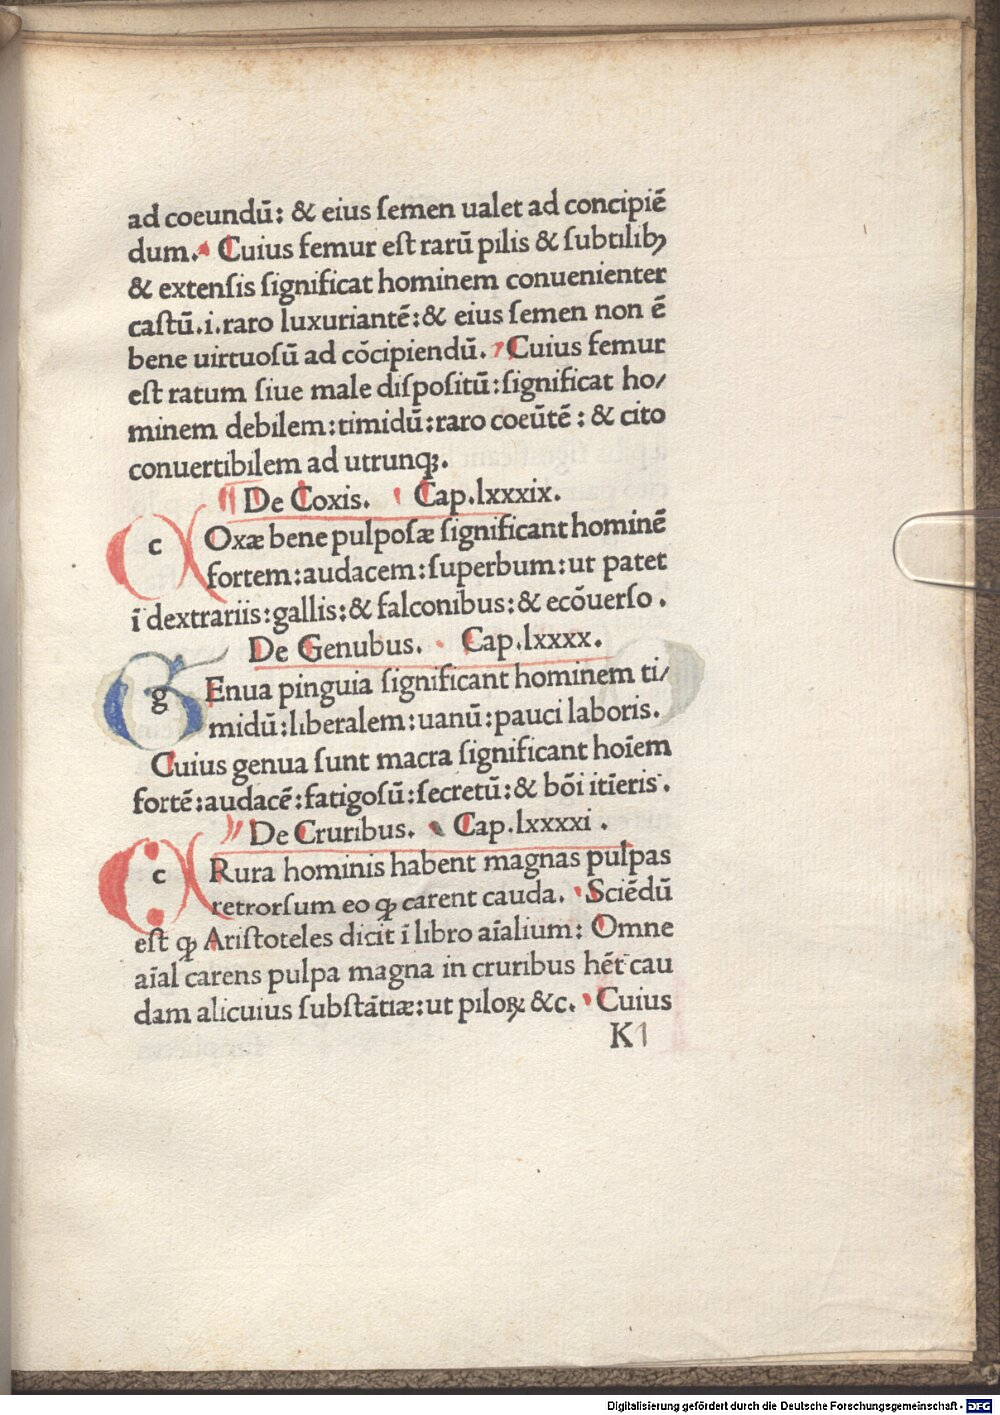 ad coeundū: & eius ſemen ualet ad concipiē
dum. Cuius femur eſt rarū pilis & ſubtilibꝫ
& extenſis ſignificat hominem conuenienter
caſtū.i.raro luxuriantē:& eius ſemen non ē
bene uirtuoſū ad cōcipiendū. Cuius femur
eſt ratum ſiue male diſpoſitū:ſignificat ho/
minem debilem:timidū:raro coeūtē: & cito
conuertibilem ad utrunqꝫ.
De Coxis. Cap.lxxxix.
c Oxæ bene pulpoſæ ſignificant hominē
fortem:audacem:ſuperbum:ut patet
ī dextrariis:gallis:& falconibus:& ecōuerſo.
De Genubus. Cap.lxxxx.
g Enua pinguia ſignificant hominem ti/
midū:liberalem:uanū:pauci laboris.
Cuius genua ſunt macra ſignificant hoīem
fortē:audacē:fatigoſū:ſecretū:& bōi itīeris.
De Cruribus. Cap.lxxxxi.
c Rura hominis habent magnas pulpas
retrorſum eo ꝙ carent cauda. Sciēdū
eſt ꝙ Ariſtoteles dicit ī libro aīalium: Omne
aīal carens pulpa magna in cruribus hēt cau
dam alicuius ſubſtātiæ:ut piloꝝ &c. Cuius
K1
Digitalisierung gefördert durch die Deutsche Forschungsgemeinschaft - DFG